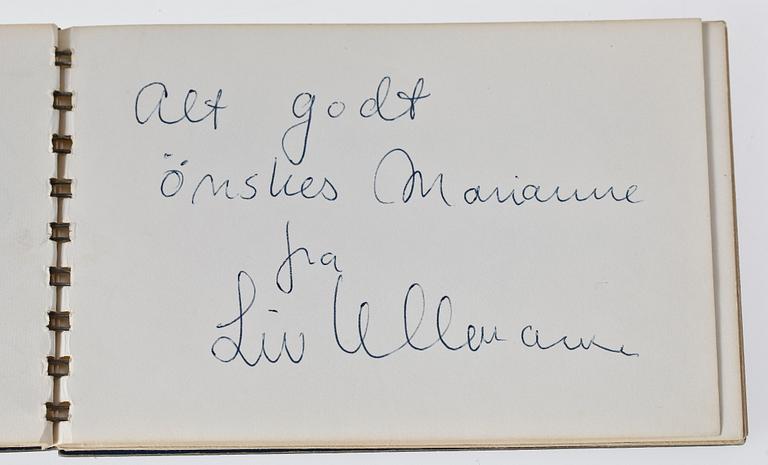 Alt godt
önskes Marianne
fra
Liv Ullmann